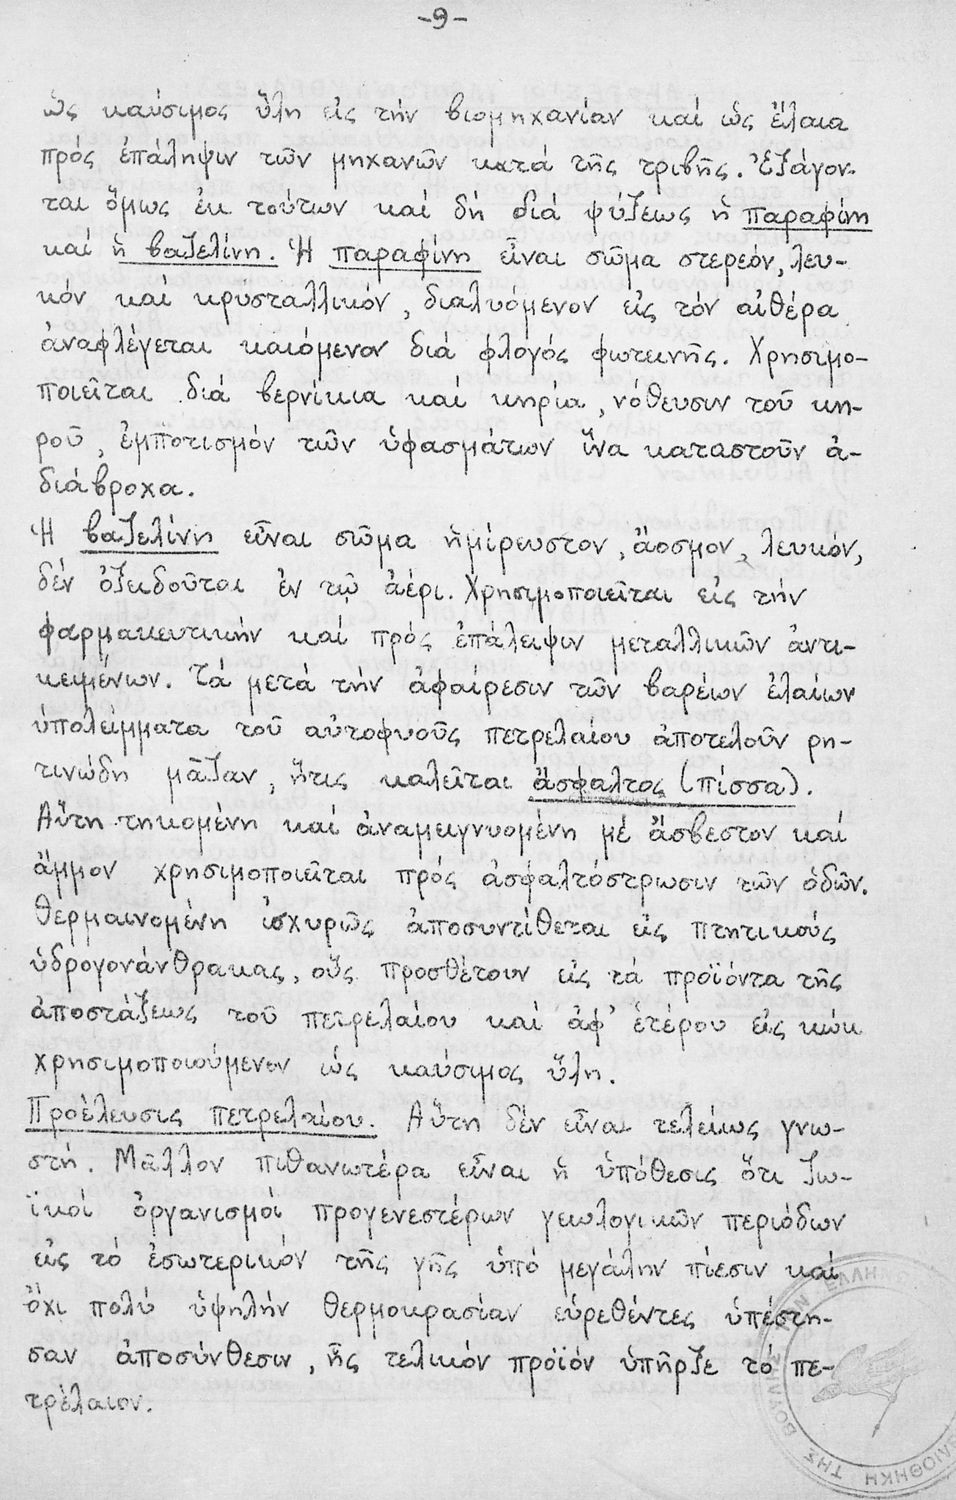 -9-
ὡς καύσιμος ὕλη εἰς τήν βιομηχανίαν καί ὡς ἔλαια
πρός ἐπάληψιν τῶν μηχανῶν κατά τῆς τριβῆς. Ἐξάγον-
ται ὅμως ἐκ τούτων καί δή διά ψύξεως ἡ παραφίνη
καί ἡ βαζελίνη. Ἡ παραφίνη εἶναι σῶμα στερεόν, λευ-
κόν καί κρυσταλλικον, διαλυόμενον εἰς τόν αἰθέρα
ἀναφλέγεται καιόμενον διά φλογός φωτεινῆς. Χρησιμο-
ποιεῖται διά βερνίκια καί κηρία, νόθευσιν τοῦ κη-
ροῦ, ἐμποτισμόν τῶν ὑφασμάτων ἵνα καταστοῦν ἀ-
διάβροχα.
Ἡ βαζελίνη εἶναι σῶμα ἡμίρευστον, ἄοσμον, λευκόν,
δέν ὀξειδοῦται ἐν τῷ ἀέρι. Χρησιμοποιεῖται εἰς τήν
φαρμακευτικήν καί πρός ἐπάλειψιν μεταλλικῶν ἀντι-
κειμένων. Τά μετά τήν ἀφαίρεσιν τῶν βαρέων ἐλαίων
ὑπολειμματα τοῦ αὐτοφυοῦς πετρελαίου ἀποτελοῦν ρη-
τινώδη μᾶζαν, ἥτις καλεῖται ἄσφαλτος (πίσσα).
Αὕτη τηκομένη καί ἀναμειγνυομένη μέ ἄσβεστον καί
ἄμμον χρησιμοποιεῖται πρός ἀσφαλτόστρωσιν τῶν ὁδῶν.
Θερμαινομένη ἰσχυρῶς ἀποσυντίθεται εἰς πτητικούς
ὑδρογονάνθρακας, οὕς προσθέτουν εἰς τά προϊόντα τῆς
ἀποστάξεως τοῦ πετρελαίου καί ἀφ' ἑτέρου εἰς κώκ
χρησιμοποιούμενον ὡς καύσιμος ὕλη.
Προέλευσις πετρελαίου. Αὕτη δέν εἶναι τελείως γνω-
στή. Μᾶλλον πιθανωτέρα εἶναι ἡ ὑπόθεσις ὅτι ζω-
ϊκοί ὀργανισμοί προγενεστέρων γεωλογικῶν περιόδων
εἰς τό ἐσωτερικόν τῆς γῆς ὑπό μεγάλην πίεσιν καί
ὄχι πολύ ὑψηλήν θερμοκρασίαν εὑρεθέντες ὑπέστη-
σαν ἀποσύνθεσιν, ἧς τελικόν προϊόν ὑπῆρξε τό πε-
τρέλαιον.
ΤΗΣ ΒΟΥΛΗΣ ΤΩΝ ΕΛΛΗΝ